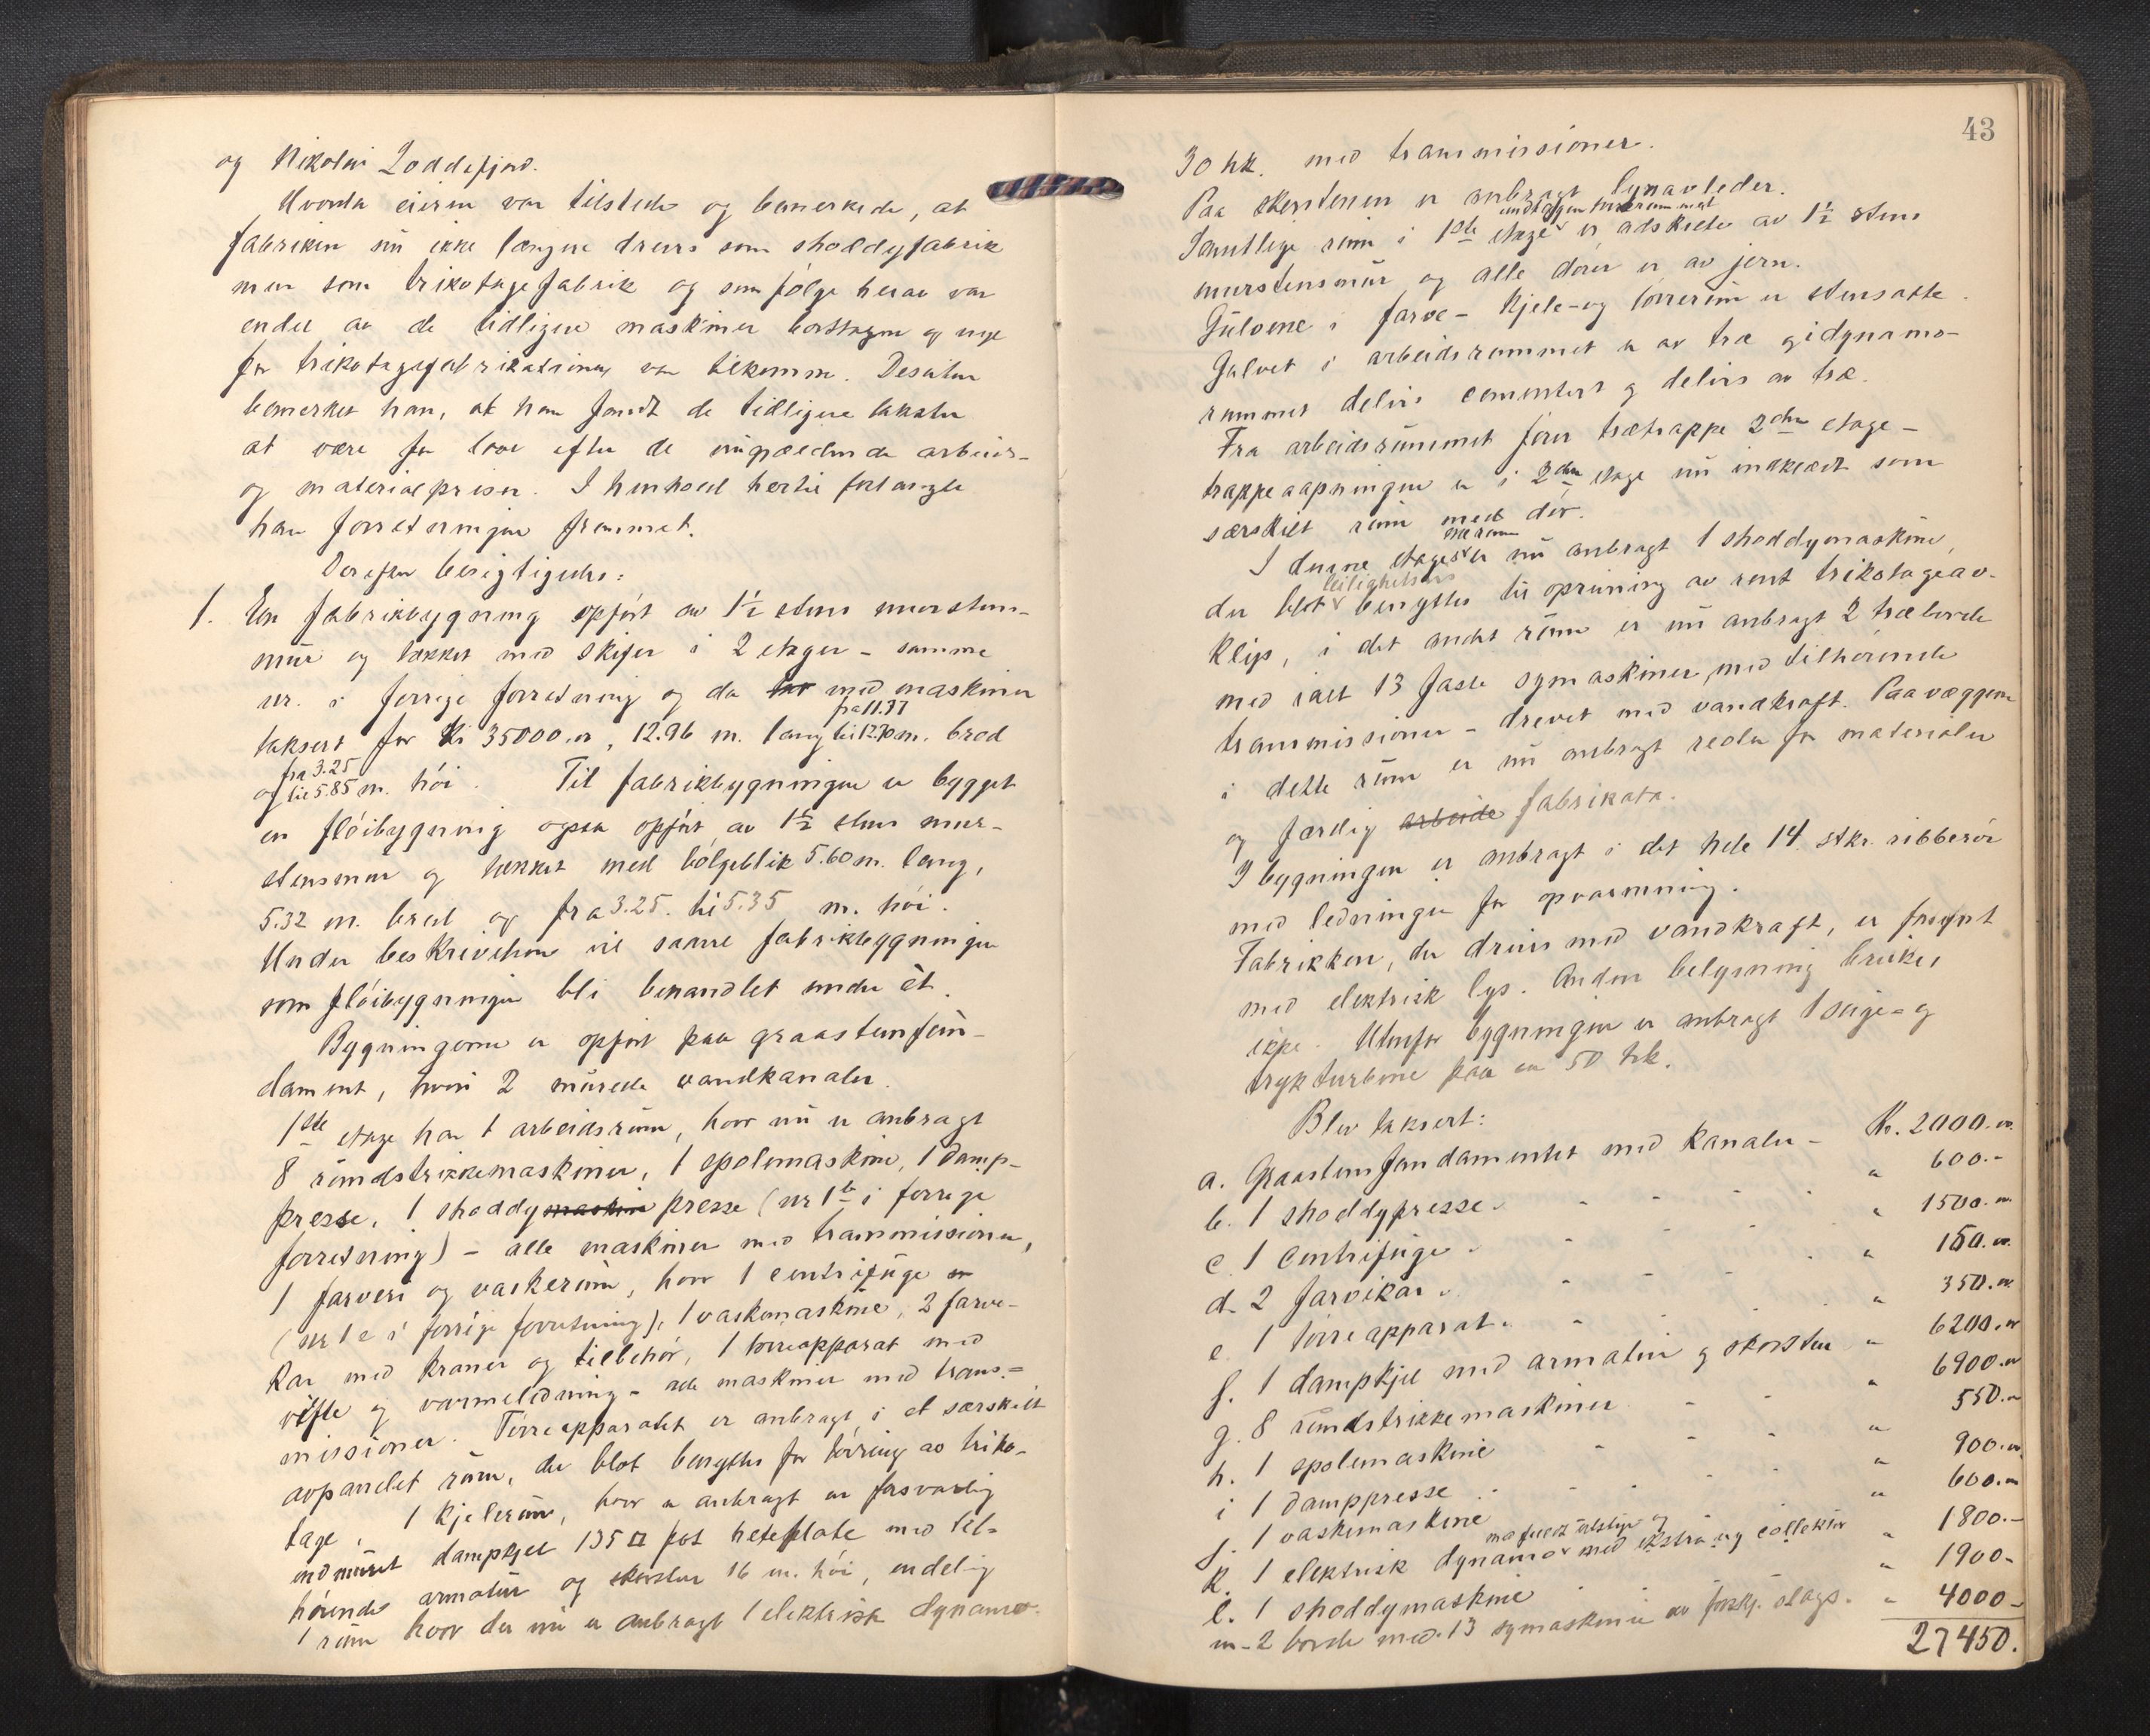 og Nikolai Loddefjord.
Hvorda eieren var tilstede og bemerkede, at
fabriken nu ikke længere drives som shoddyfabrik
men som trikotagefabrik og som følge herav var
endel av de tidligere maskiner borttagne og nye
for trikotagefabrikationen var tilkomne. Desuten
bemerket han, at han fandt de tidligere takster
at være for lave efter de nugjældende arbeids-
og materialpriser. I henhold hertil forlangte
han forretningen fremmet.
Derefter besigtigedes:
1. En fabrikbygning opført av 1½ stens mursten-
mur og tækket med skifer i 2 etager - samme
nr. i forrige forretning og da med maskiner
fra 11.77
taksert for Kr 35000.00, 12.96 m. lang til 12.70 m. bred
fra 3.25
og til 5.85 m. høi. Til fabrikbygningen er bygget
en fløibygning ogsaa opført av 1½ stens mur-
stensmur og tækket med bølgeblik 5.60 m. lang,
5.32 m. bred og fra 3.25. til 5.35 m. høi.
Under beskrivelsen vil saavel fabrikbygningen
som fløibygningen bli behandlet under ét.
Bygningerne er opført paa graastensfun-
dament, hvori 2 murede vandkanaler.
1ste etage har 1 arbeidsrum, hvor nu er anbragt
8 rundstrikkemaskiner, 1 spolemaskine, 1 damp-
presse, 1 shoddymaskine presse (nr 1 b i forrige
forretning) - alle maskiner med transmissioner,
1 farveri og vaskerum, hvor 1 centrifuge
(nr 1 c i forrige forretning), 1 vaskemaskine, 2 farve-
kar med kraner og tilbehør, 1 tørreapparat med
vifte og varmeledning - alle maskiner med trans-
missioner. Tørreapparatet er anbragt i et særskilt
avpanelet rum, der blot benyttes for tørring av triko-
tage, 1 kjelerum, hvor er anbragt en forsvarlig
indmuret dampkjel 135 □ fot heteflate med til-
hørende armatur og skorsten 16 m. høi, endelig
1 rum hvor der nu er anbragt 1 elektrisk dynamo
43
30 hk. med transmissioner.
Paa skorstenen er anbragt lynavleder.
undtagen
Samtlige rum i 1ste etage er adskilte av 1½ stens
murstensmur og alle dører er av jern.
Gulvene i farve- kjele- og tørrerum er stensatte.
Gulvet i arbeidsrummet er av træ og i dynamo-
rummet delvis cementert og delvis av træ.
Fra arbeidsrummet fører trætrappe 2den etage -
trappeaapningen er i 2den etage nu indklædt som
særskilt rum med dør.
I denne etages er nu anbragt 1 shoddymaskine,
leilighetsvis
der blot benyttes til oprivning av rent trikotageav-
klip, i det andet rum er nu anbragt 2 træborde
med ialt 13 faste symaskiner, med tilhørende
transmissioner - drevet med vandkraft. Paa væggene
i dette rum er nu anbragt reoler for materialer
og færdig arbeide fabrikata.
I bygningen er anbragt i det hele 14 stkr. ribberør
med ledninger for opvarmning.
Fabrikken, der drives med vandkraft, er forsynt
med elektrisk lys. Anden belysning brukes
ikke. Utenfor bygningen er anbragt 1 suge- og
trykturbine paa ca 50 hk.
Blev taksert:
a. Graastensfundamentet med kanaler - Kr. 2000.00
b. 1 shoddypresse. " 600.-
c. 1 centrifuge. " 1500.00
d. 2 farvikar. " 150.00
e. 1 tørreapparat. " 350.00
f. 1 dampkjel med armatur og skorsten " 6200.00
g. 8 rundstrikkemaskiner " 6900.00
h. 1 spolemaskine " 550.-
i 1 damppresse " 900.00
j. 1 vaskemaskine " 600.-
k. 1 elektrisk dynamo med ekstra ny collektor " 1800.-
l. 1 shoddymaskine " 1900-
m - 2 borde med 13 symaskiner av forskj. slags. " 4000-
27450.